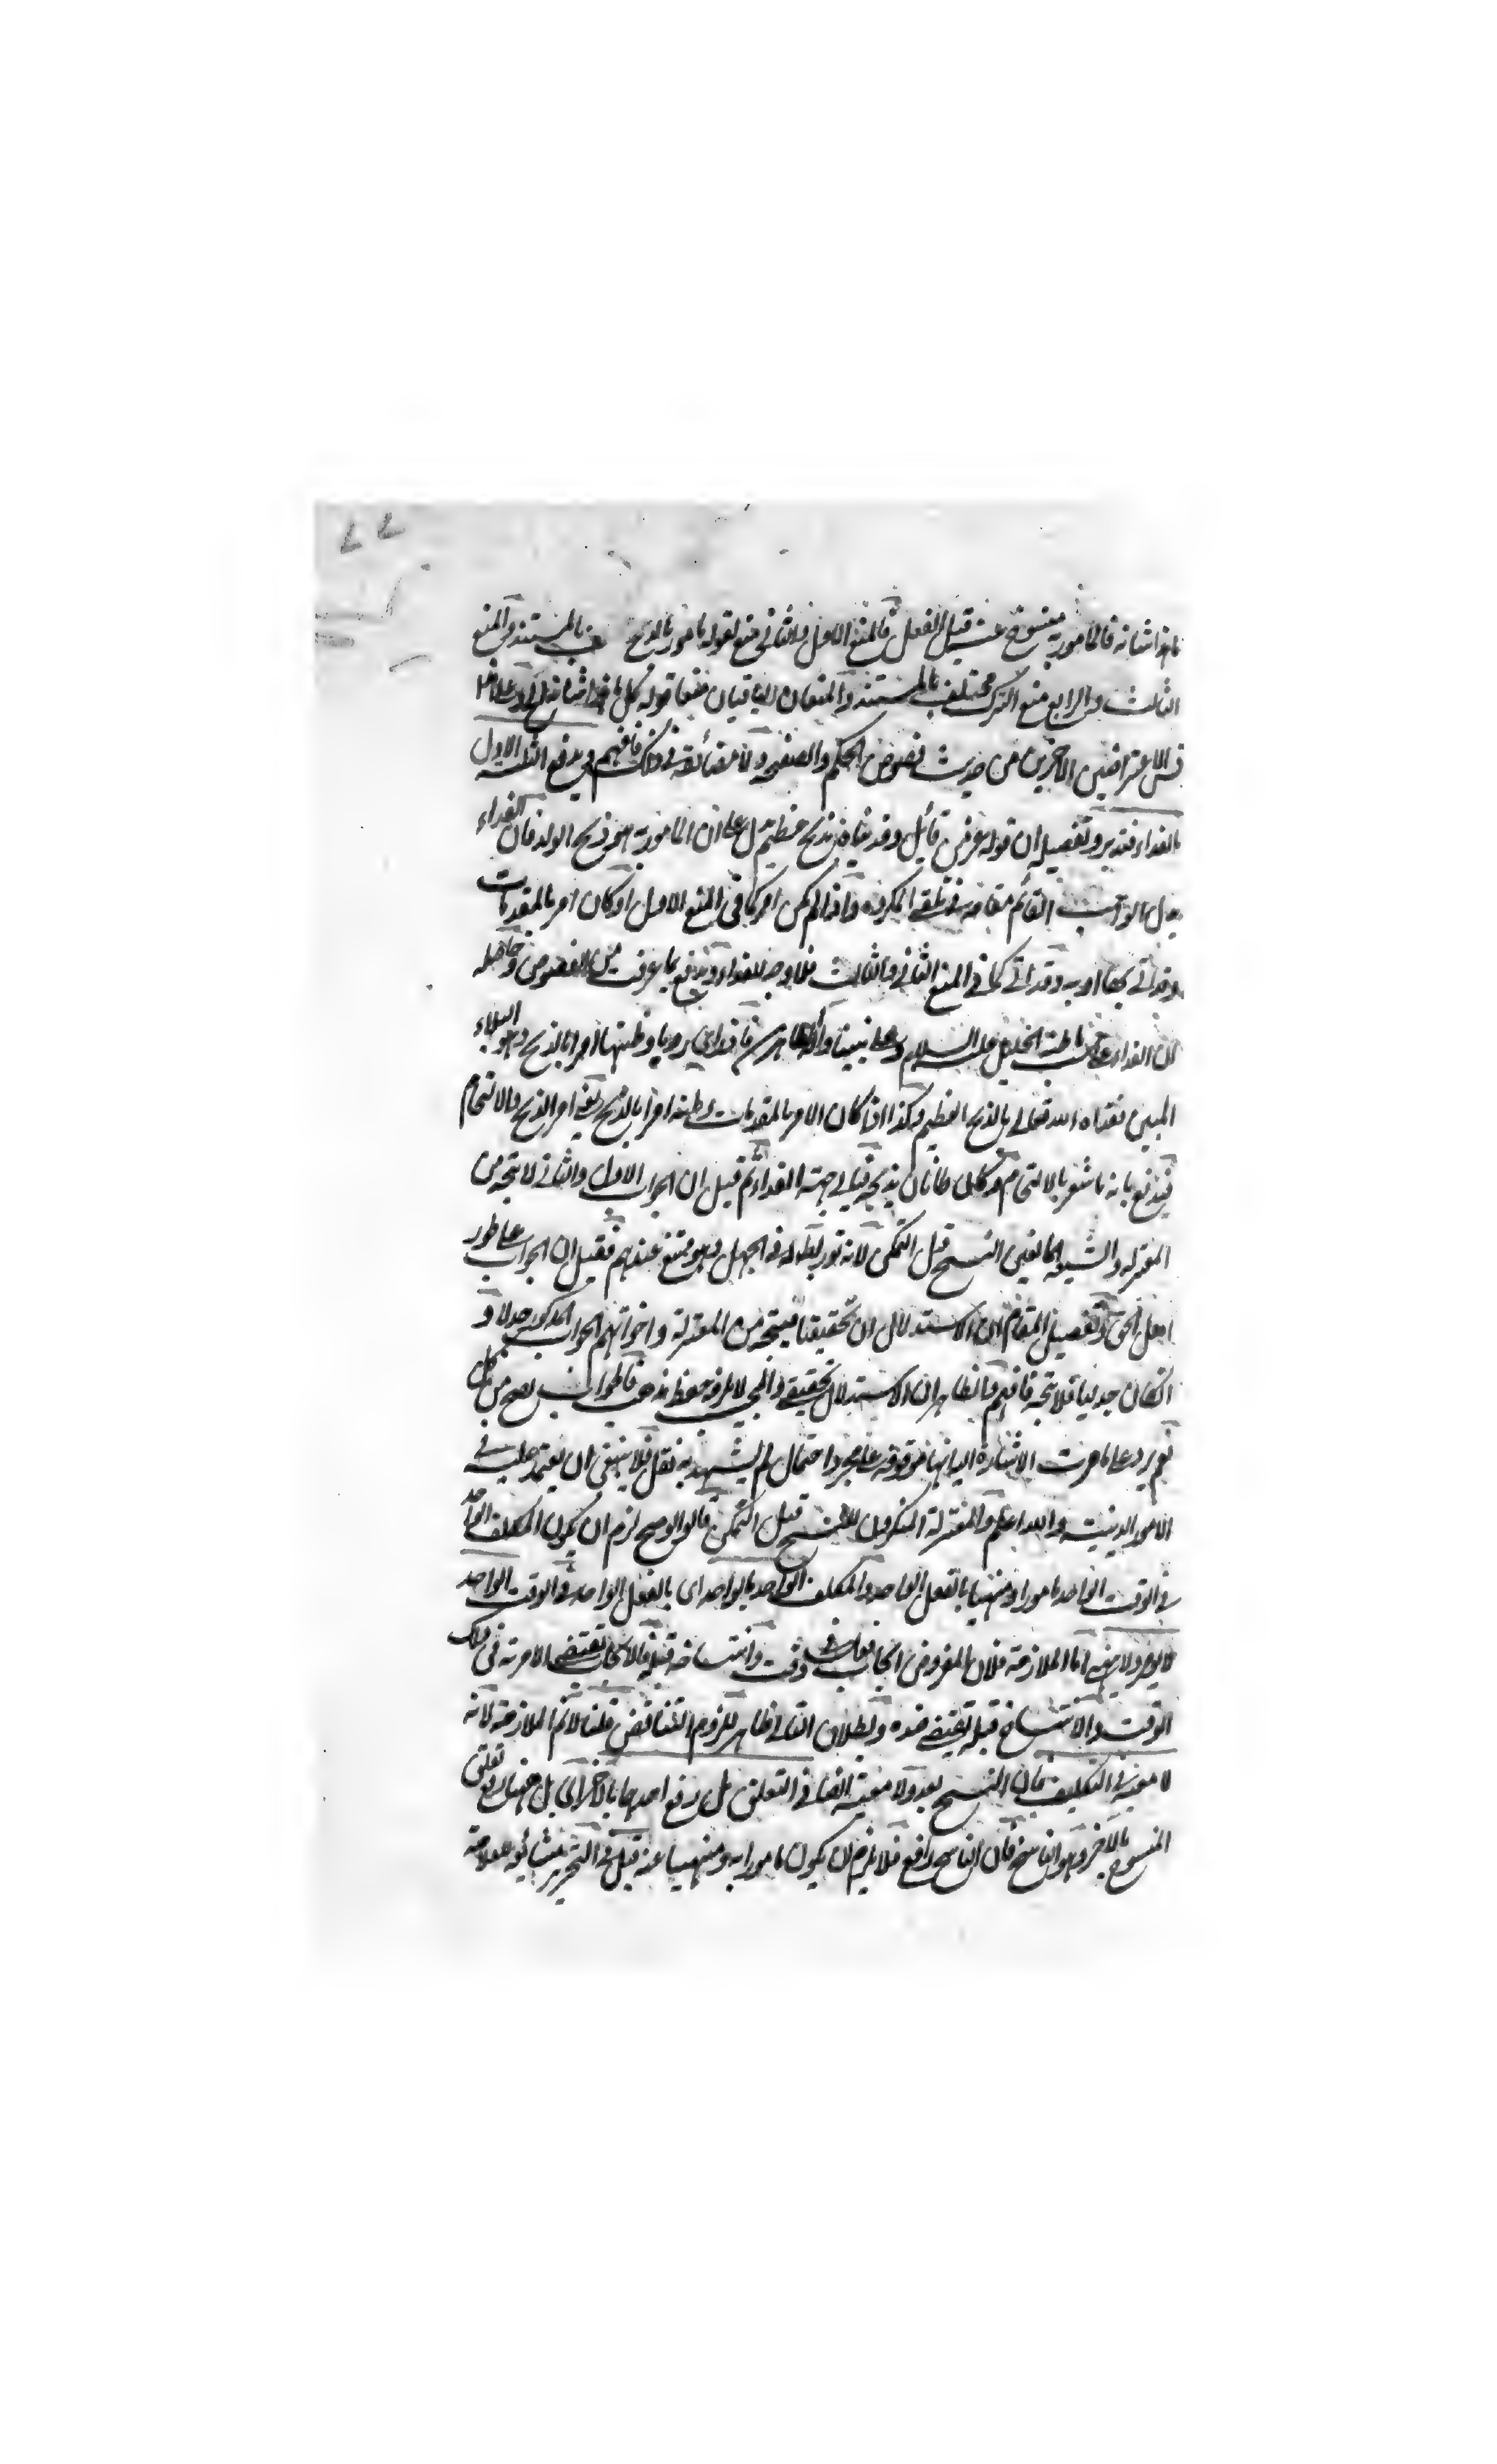 ما هذا شأنه فالمأمور به منسوخ عنه قبل الفعل فالمنع الاول والثاني منع لقوله مأمور بالذبح بالمستند والمنع
الثالث والرابع منع الترك مختلف بالمستند والمنعان الباقيان منعا قوله كل ما هذا شأنه
الاعتراضين الاخيرين من حديث فصوص الحكم ولا مضائقة في ذلك فافهم ويدفع الثلثة الاول
بالفداء فتدبر وتفصيله ان قوله عز من قائل وفديناه بذبح عظيم يدل على ان المأمور به هو ذبح الولد فان الفداء
بدل الواجب القائم مقامه في تلقي المكروه واذا لم يكن امر كما في المنع الاول او كان امر بالمقدمات
وقد اتى بها او به وقد اتى كما في المنع الثاني والثالث فلا وجه للفداء ويدفع بما عرفت من الفصوص وحاصله
ان الفداء على ما ظنه الخليل عليه السلام وعلى نبينا وآله فداى رؤيا وظنها امرا بالذبح وهو البلاء
المبين ففداه الله تعالى بالذبح العظيم وكذا اذا كان الامر بالمقدمات وظنه امرا بالذبح بقي امر الذبح والالتحام
فيدفع بانه ما شعر بالالتحام وكان ظانا ان يذبحه فيأتي جهة الفداء ثم قيل ان الجواب الاول والثاني لا يتجه من
المعتزلة والشيعة المانعين النسخ قبل التمكن لانه توريط له في الجهل وهو ممتنع عندهم فقيل ان الجواب على طور
اهل الحق وتفصيل المقام ان الاستدلال ان تحقيقيا فيتجه من المعتزلة واخواتهم الجواب المذكور جدلا و
ان كان جدليا فلا يتجه فافهم والظاهر ان الاستدلال تحقيقي والمجيب لا يلزمه حفظ مذهب فالجواب يصح من كل
نعم يرد على ما مرت الاشارة اليه انها موقوفة على مجرد احتمال لم يشهد به نقل فلا ينبغي ان يعتمد عليه في
الامور الدينية والله اعلم والمعتزلة المنكرون للنسخ قبل التمكن قالوا لو صح لزم ان يكون المكلف الواحد
في الوقت الواحد مأمورا ومنهيا بالفعل الواحد والمكلف الواحد بالواحد اى بالفعل الواحد في الوقت الواحد
لا يؤمر ولا ينهى اما الملازمة فلان المفروض ايجاب فعل في وقت وانتساخه قبله فالايجاب يقتضي الامر به في ذلك
الوقت والانتساخ قبله يقتضي ضده وبطلان التالي ظاهر للزوم التناقض قلنا لا نم الملازمة لانه
لا معية في التكليف فان النسخ بعد ولا معية ايضا في التعلق بل رفع احدهما بالاخر اى بل ههنا رفع تعلق
المنسوخ بالاخر وهو الناسخ فان الناسخ رافع فلا يلزم ان يكون مأمورا به ومنهيا عنه قيل في التحرير